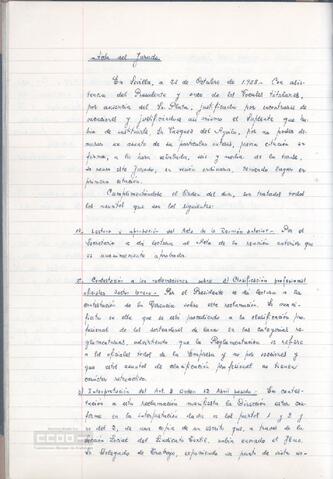 Acta del Jurado
En Sevilla, a 22 de Octubre de 1.958.- Con asis-
tencia del Presidente y once de los Vocales titulares,
por ausencia del Sr. Plata, justificada por encontrarse de
vacaciones y justificándose así mismo el Suplente que ha-
bía de sustituirle, Sr. Vazquez del Aguila, por no poder de-
morar un asunto de su particular interés, previa citación en
forma, a la hora señalada, seis y media de la tarde,
se reune este Jurado, en sesión ordinaria, teniendo lugar en
primera citación.
Cumplimentándose el Orden del día, son tratados todos
los asuntos que son los siguientes:
Lectura y aprobación del Acta de la Reunión anterior.- Por el
Secretario se da lectura al Acta de la reunión anterior que
es unanimemente aprobada.
Contestación a las reclamaciones sobre la Clasificación profesional
Por el Presidente se da lectura a la
contestación de la Gerencia sobre esta reclamación. Se mani-
fiesta en ella que se está procediendo a la clasificación pro-
fesional de los
en las categorías re-
glamentarias, advirtiendo que la Reglamentación se refiere
a los oficiales todos de la Empresa y no por secciones y
que estos asuntos de clasificación profesional no tienen
carácter retroactivo.
Interpretación del Art. 2 Orden 12 Abril pasado.- En contes-
tación a esta reclamación manifiesta la Dirección estar con-
forme en la interpretación dada a los puntos 1 y 2 y
no del 3, de una copia de un escrito que, a través de la
Sección Social del Sindicato Textil, había enviado al Ilmo.
Sr. Delegado de Trabajo, exponiendo un punto de vista
CCOO